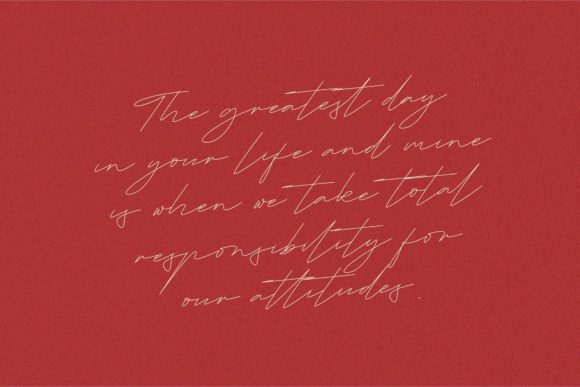 The greatest day
in your life and mine
is when we take total
responsibility for
our attitudes.